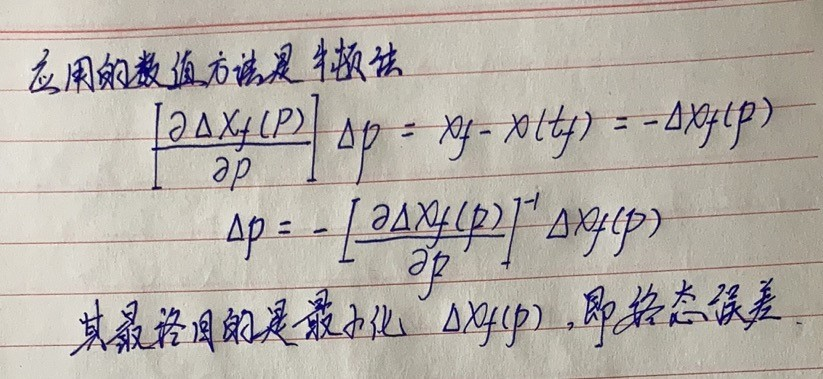 应用的数值方法是牛顿法
[∂ΔXf(P)/∂P] Δp = xf - x(tf) = -Δxf(p)
Δp = -[∂Δxf(p)/∂p]⁻¹ Δxf(p)
其最终目的是最小化 Δxf(p),即终态误差.